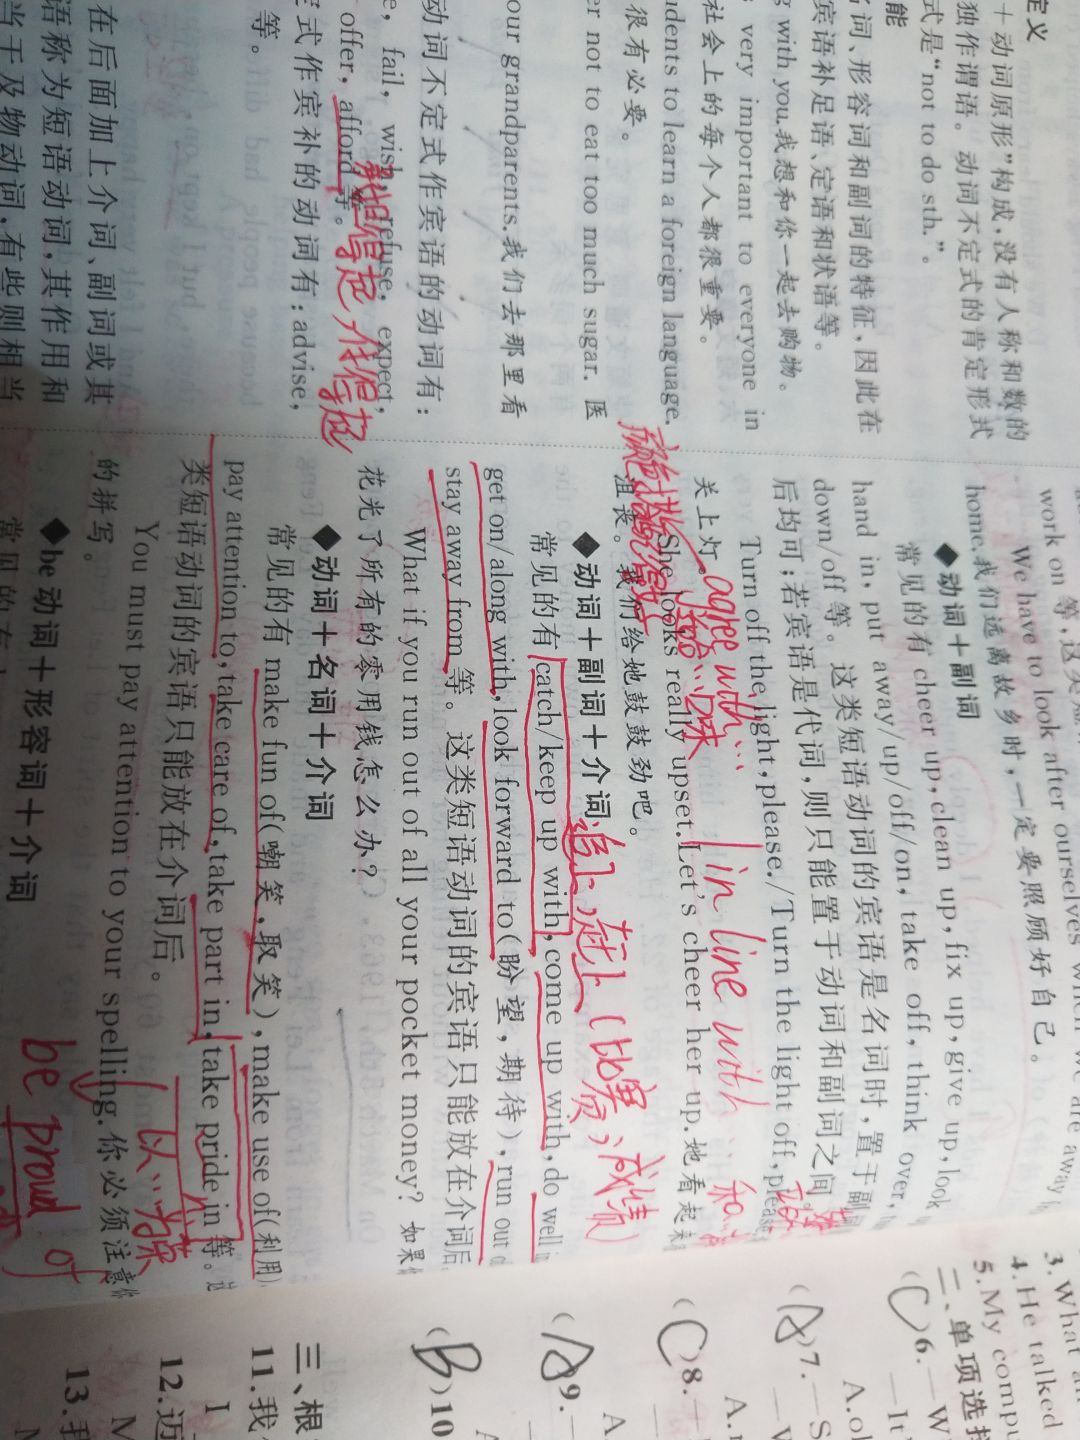 定义
＋动词原形”构成,没有人称和数的
独作谓语。动词不定式的肯定形式
式是“not to do sth.”。
能
词、形容词和副词的特征,因此在
宾语补足语、定语和状语等。
with you.我想和你一起去购物。
very important to everyone in
社会上的每个人都很重要。
dents to learn a foreign language.
很有必要。
er not to eat too much sugar. 医
our grandparents.我们去那里看
动词不定式作宾语的动词有:
e, fail, wish, refuse, expect,
offer, afford等。
担得起,付得起
式作宾补的动词有:advise,
等。
在后面加上介词、副词或其
语称为短语动词,其作用和
当于及物动词,有些则相当
work on 等,这类短
We have to look after ourselves when we are away
home.我们远离故乡时,一定要照顾好自己。
◆动词＋副词
常见的有 cheer up,clean up,fix up,give up,look
hand in, put away/up/off/on, take off, think over,
down/off 等。这类短语动词的宾语是名词时,置于副
后均可;若宾语是代词,则只能置于动词和副词之间
Turn off the light,please./Turn the light off,please
关上灯。
agree with
in line with
She looks really upset.Let's cheer her up.她看起来
沮丧。我们给她鼓鼓劲吧。
◆动词＋副词＋介词
追上,赶上(比赛,成绩)
常见的有 catch/keep up with,come up with,do well
get on/along with,look forward to(盼望,期待),run out
stay away from 等。这类短语动词的宾语只能放在介词后
What if you run out of all your pocket money? 如果
花光了所有的零用钱,怎么办?
◆动词＋名词＋介词
常见的有 make fun of(嘲笑,取笑),make use of(利用)
pay attention to,take care of,take part in,take pride in 等。
类短语动词的宾语只能放在介词后。
以…为
You must pay attention to your spelling.你必须注意
be proud of
的拼写。
◆be 动词＋形容词＋介词
3.What a
4.He talked
5.My compu
二、单项选择
(C)6.—W
—It
A.ol
7.—S
A.
(C)8.—
9.—
A.
(B)10
三、根
11.我
I
12.迈
M
13.我